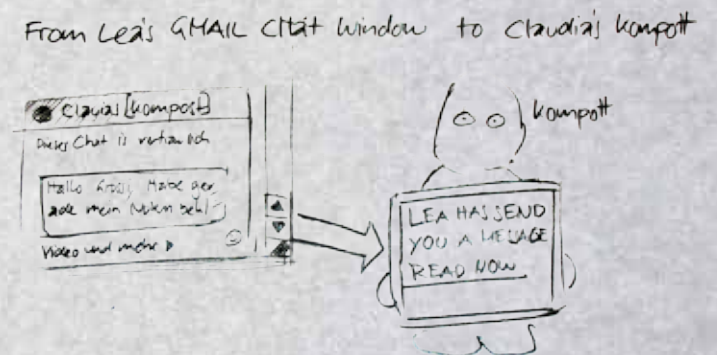 From Lea's GMAIL Chat Window to Claudia's kompott
[kompost]
Dieses Chat is vertraulich
Hallo
Habe ger
ade mein
Video und mehr
kompott
LEA HAS SEND
YOU A MESSAGE
READ NOW